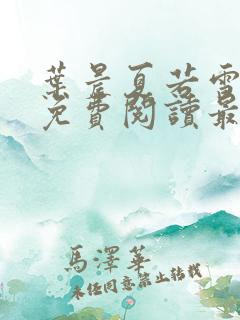 葉晨夏若雪
免費閱讀最
馬澤華
未經同意禁止轉載